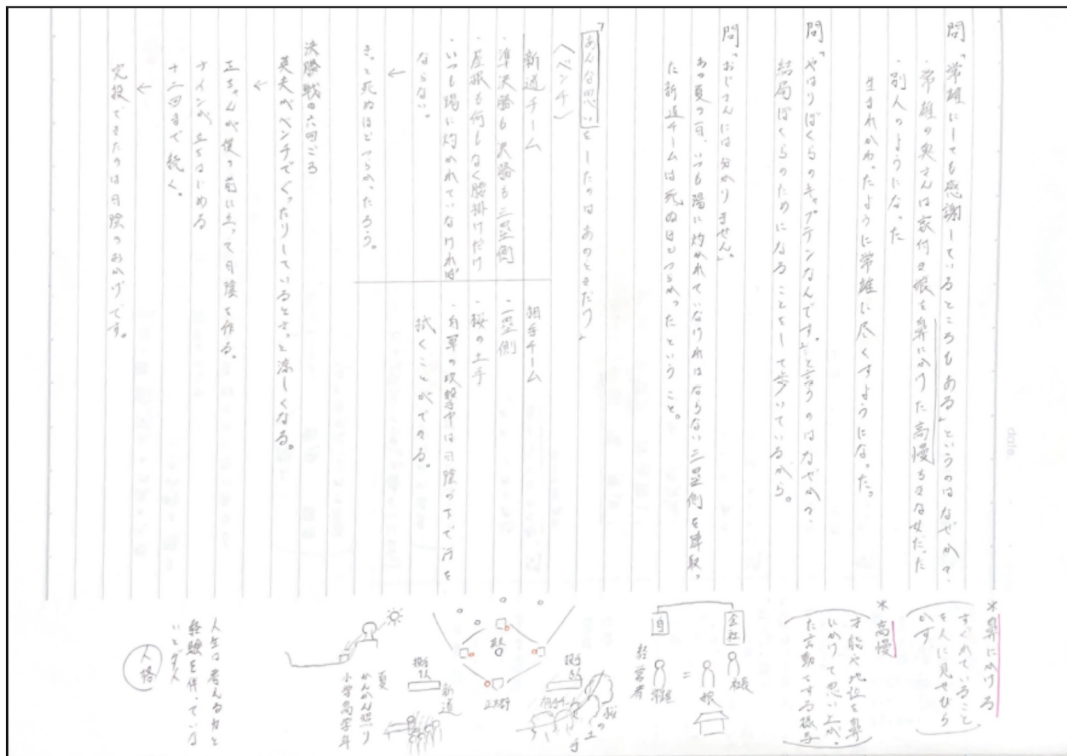 問「常雄にしても感謝しているところもある」というのはなぜか？
・常雄の奥さんは家付き娘を鼻にかけた高慢ちきな女だった
・別人のようになった
生まれかわったように常雄に尽くすようになった。
問「やはりぼくらのキャプテンなんです」と言うのはなぜか？
結局ぼくらのためになることをして歩いているから。
問「おじさんには分かりません。」
あの夏の日、いつも陽に灼かれていなければならない三塁側を陣取っ
た新道チームは死ぬほどつらかったということ。
「あんな思いをしたのはあのときだけ」
〈ベンチ〉
新道チーム
・準決勝も決勝も三塁側
・屋根も何もなく腰掛けだけ
・いつも陽に灼かれていなければ
ならない。
←
きっと死ぬほどつらかったろう。
相手チーム
・一塁側
・桜の土手
・自軍の攻撃中は日陰の下で汗を
拭くことができる。
決勝戦の六回ごろ
英夫がベンチでぐったりしているとさっと涼しくなる。
←
正ちゃんが僕の前に立って日陰を作る。
ナインが立ちはじめる
十二回まで続く。
←
完投できたのは日陰のおかげです。
*鼻にかける
すぐれていること
を人に見せびら
かす
*高慢
才能や地位を鼻
にかけて思い上がっ
た言動をする様子
会社
娘
経営者
常雄
桜の土手
相手
新道
正太郎
夏
かんかん照り
小学高学年
人生は考える力と
経験を伴っていな
いとダメ
人格